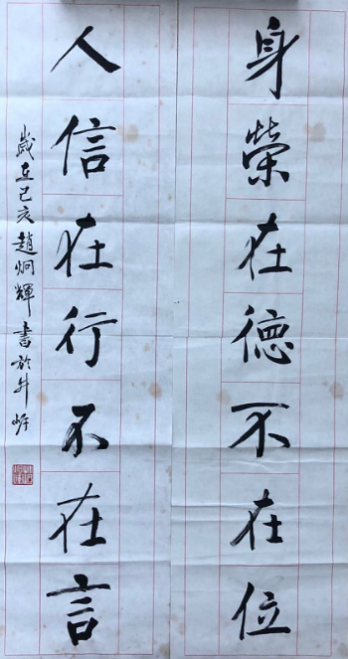 身榮在德不在位
人信在行不在言
歲在己亥趙炯輝書於廾岞